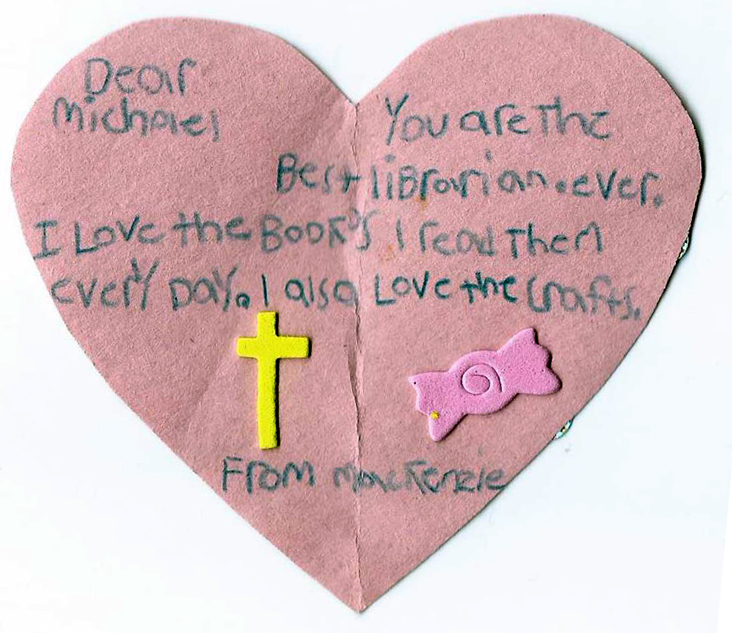 Dear
michael
You are the
Best librarian.ever.
I Love the Books I read Them
every Day. I also Love the Crafts.
From Mackenzie